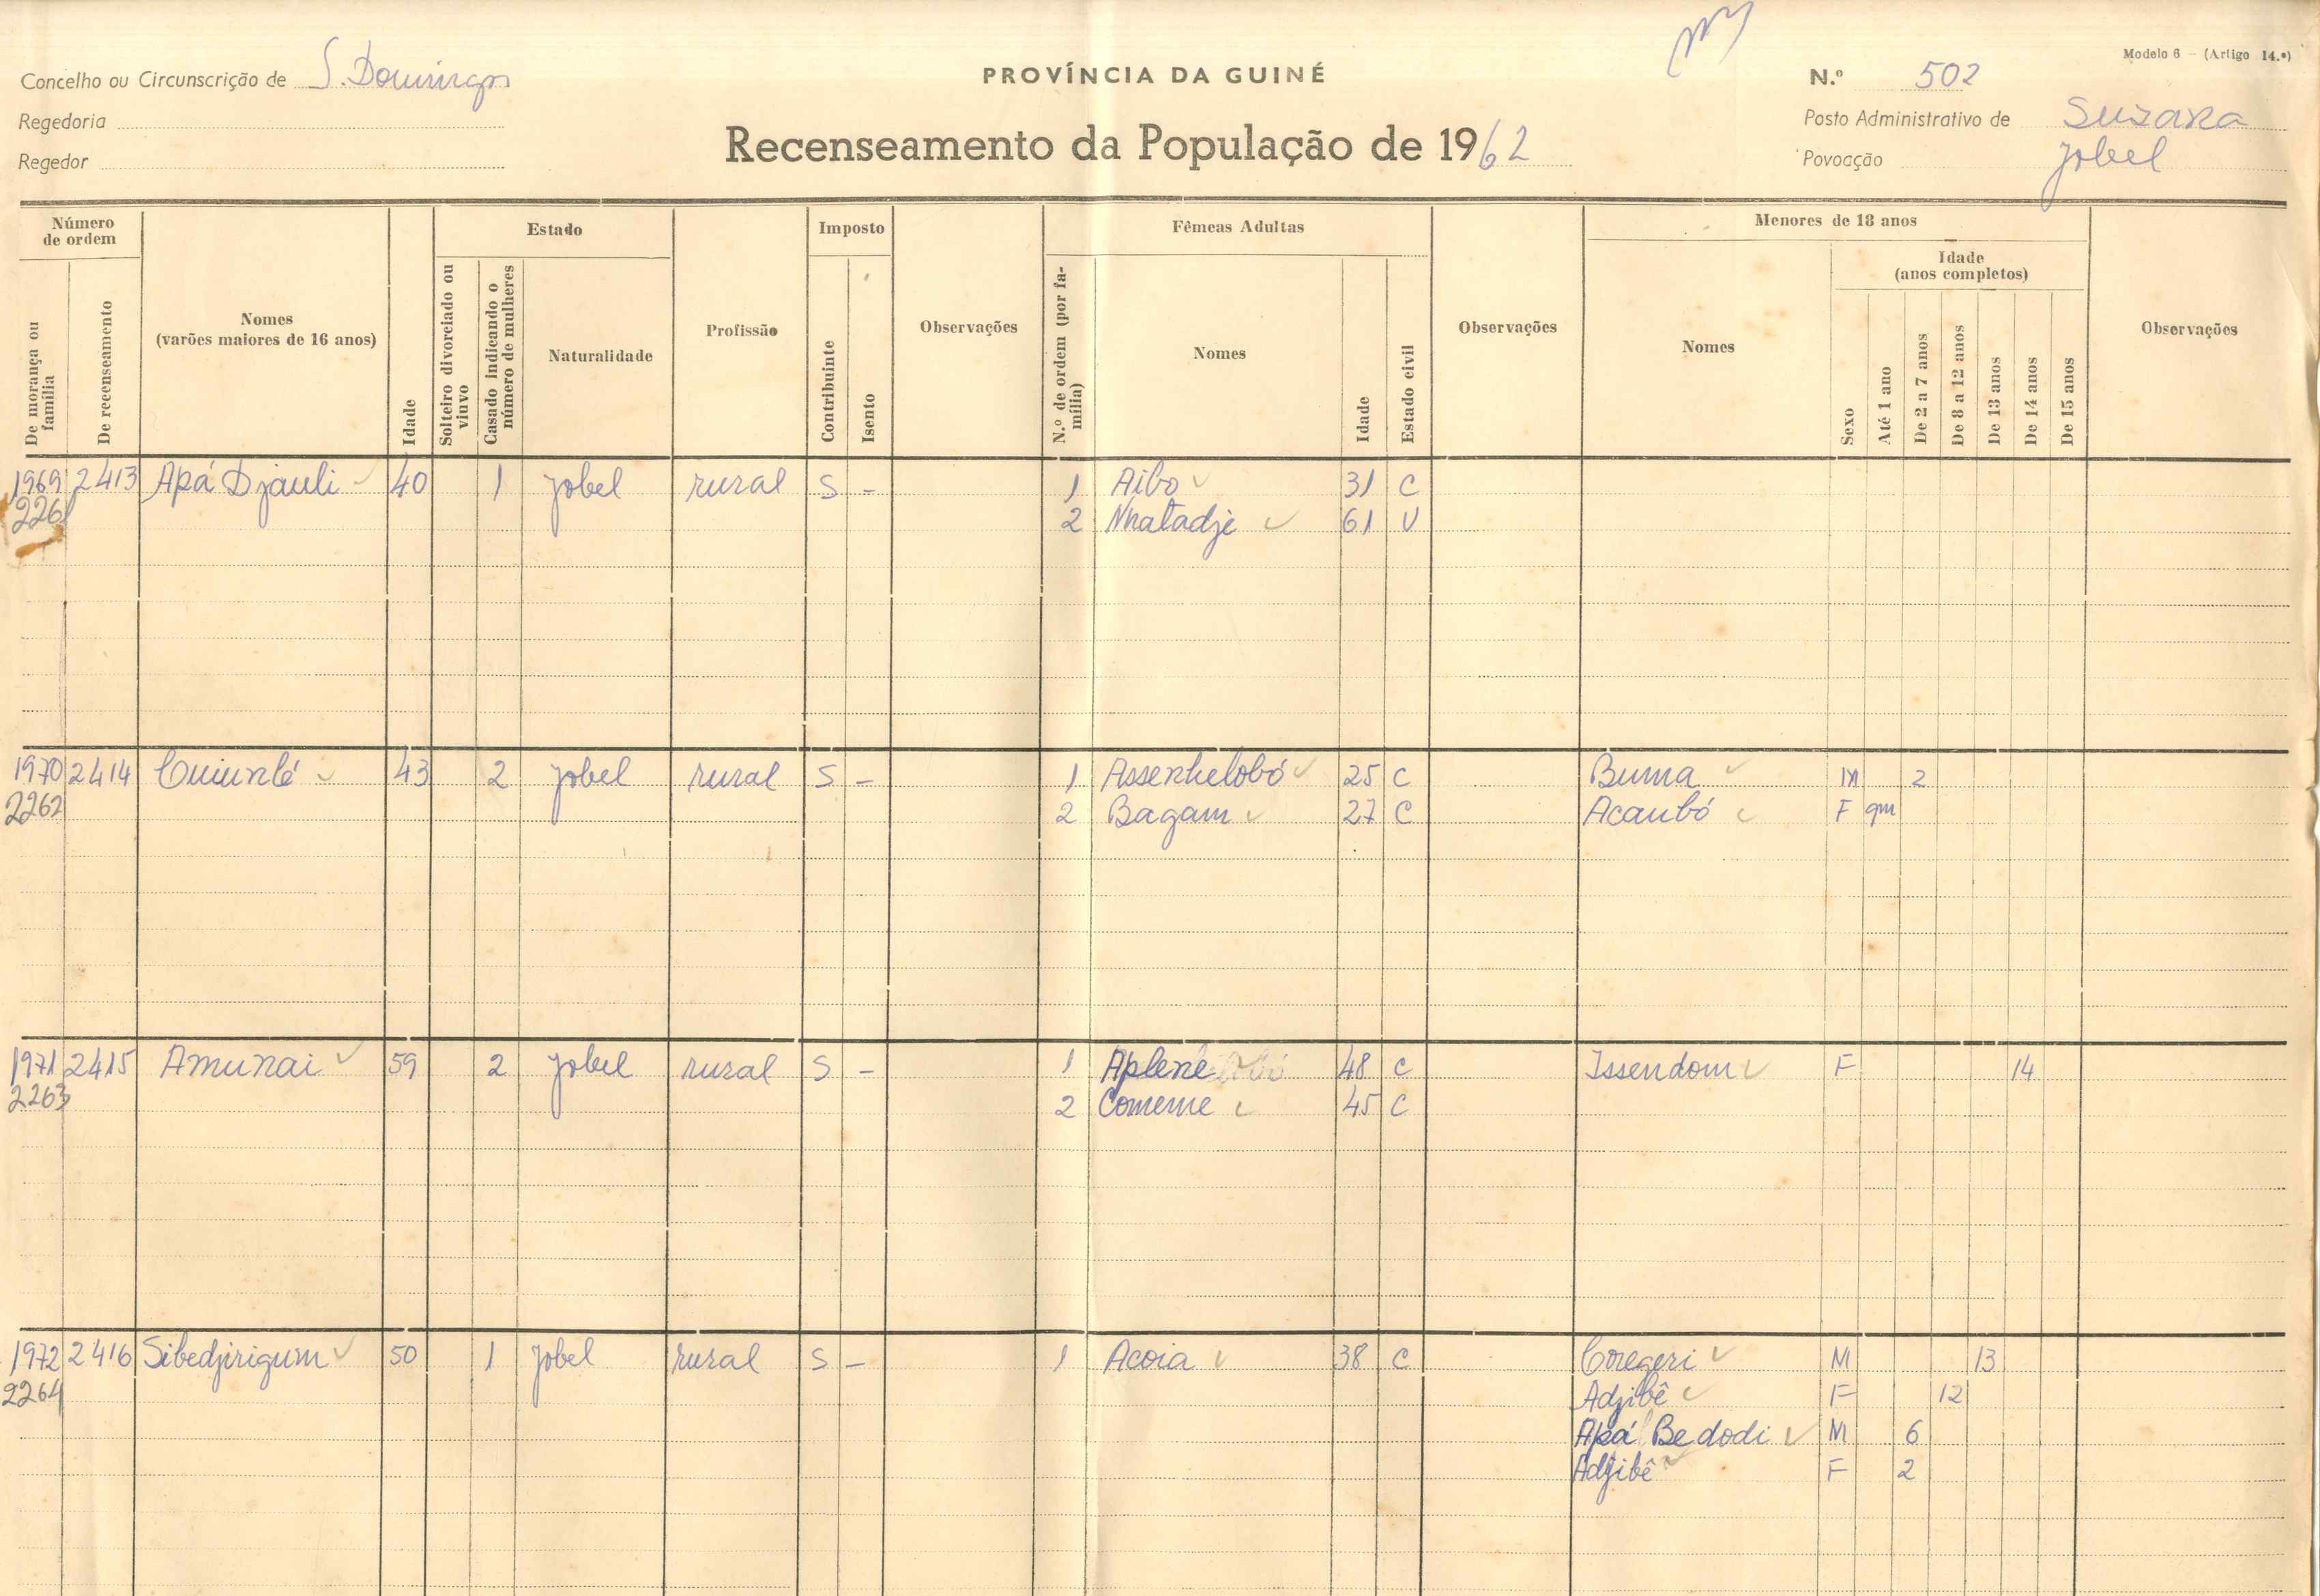 Modelo 6 — (Artigo 14.º)
Concelho ou Circunscrição de S. Domingos
PROVÍNCIA DA GUINÉ
N.º 502
Regedoria
Posto Administrativo de Suzana
Recenseamento da População de 1962
Regedor
Povoação Jobel
Número de ordem
Estado
Imposto
Fêmeas Adultas
Menores de 18 anos
Idade
(anos completos)
De morança ou família
De recenseamento
Nomes
(varões maiores de 16 anos)
Idade
Solteiro divorciado ou viuvo
Casado indicando o número de mulheres
Naturalidade
Profissão
Contribuinte
Isento
Observações
N.º de ordem (por família)
Nomes
Idade
Estado civil
Observações
Nomes
Sexo
Até 1 ano
De 2 a 7 anos
De 8 a 12 anos
De 13 anos
De 14 anos
De 15 anos
Observações
1969 2413 Apá Djauli 40 1 Jobel rural S - 1 Aibo 31 C
2261 2 Nhatadje 61 V
1970 2414 43 2 Jobel rural S - 1 Assenhelobó 25 C Buma M 2
2262 2 Bagam 27 C Acaubó F 9m
1971 2415 Amunai 59 2 Jobel rural S - 1 Aplene 48 C Issendom F 14
2263 2 Comeme 45 C
1972 2416 Sibedjirigum 50 1 Jobel rural S - 1 Acoia 38 C Coregeri M 13
2264 Adjibê F 12
Apá Bedodi M 6
Adjibê F 2